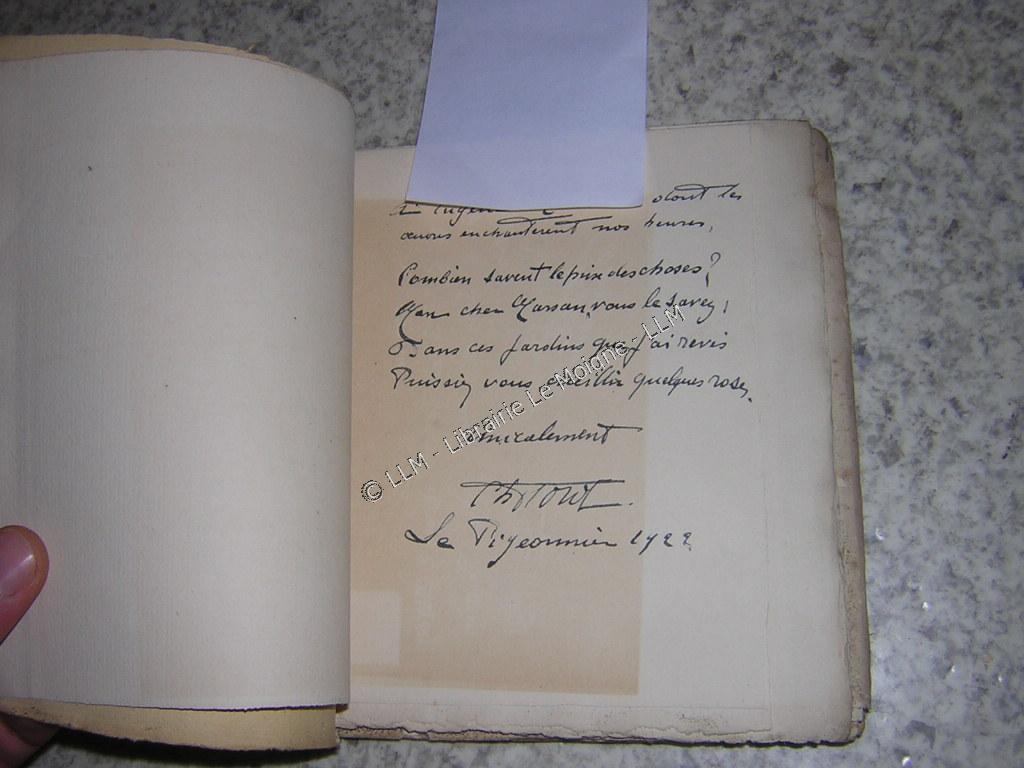 dont les
œuvres enchantèrent nos heures,
Combien savent le prix des choses?
Mon cher Marsan, vous le savez;
Dans ces Jardins que j'ai rêvés
Puissiez vous cueillir quelques roses.
Amicalement
Le Pigeonnier 1922
© LLM - Librairie Le Moigne - LLM